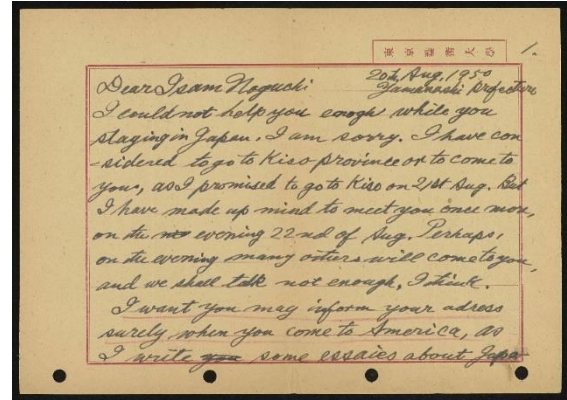 東 京 大 学
1.
20th, Aug. 1950
Dear Isam Noguchi
Yamanashi prefecture
I could not help you enogh while you
staging in Japan. I am sorry. I have con
-sidered to go to Kiso province or to come to
you, as I promised to go to Kiso on 21st Aug. But
I have made up mind to meet you once mor,
on the evening 22nd of Aug. Perhaps,
on the evening many others will come to you,
and we shall talk not enough, I think.
I want you may inform your adress
surely when you come to America, as
I write you some essaies about Japa